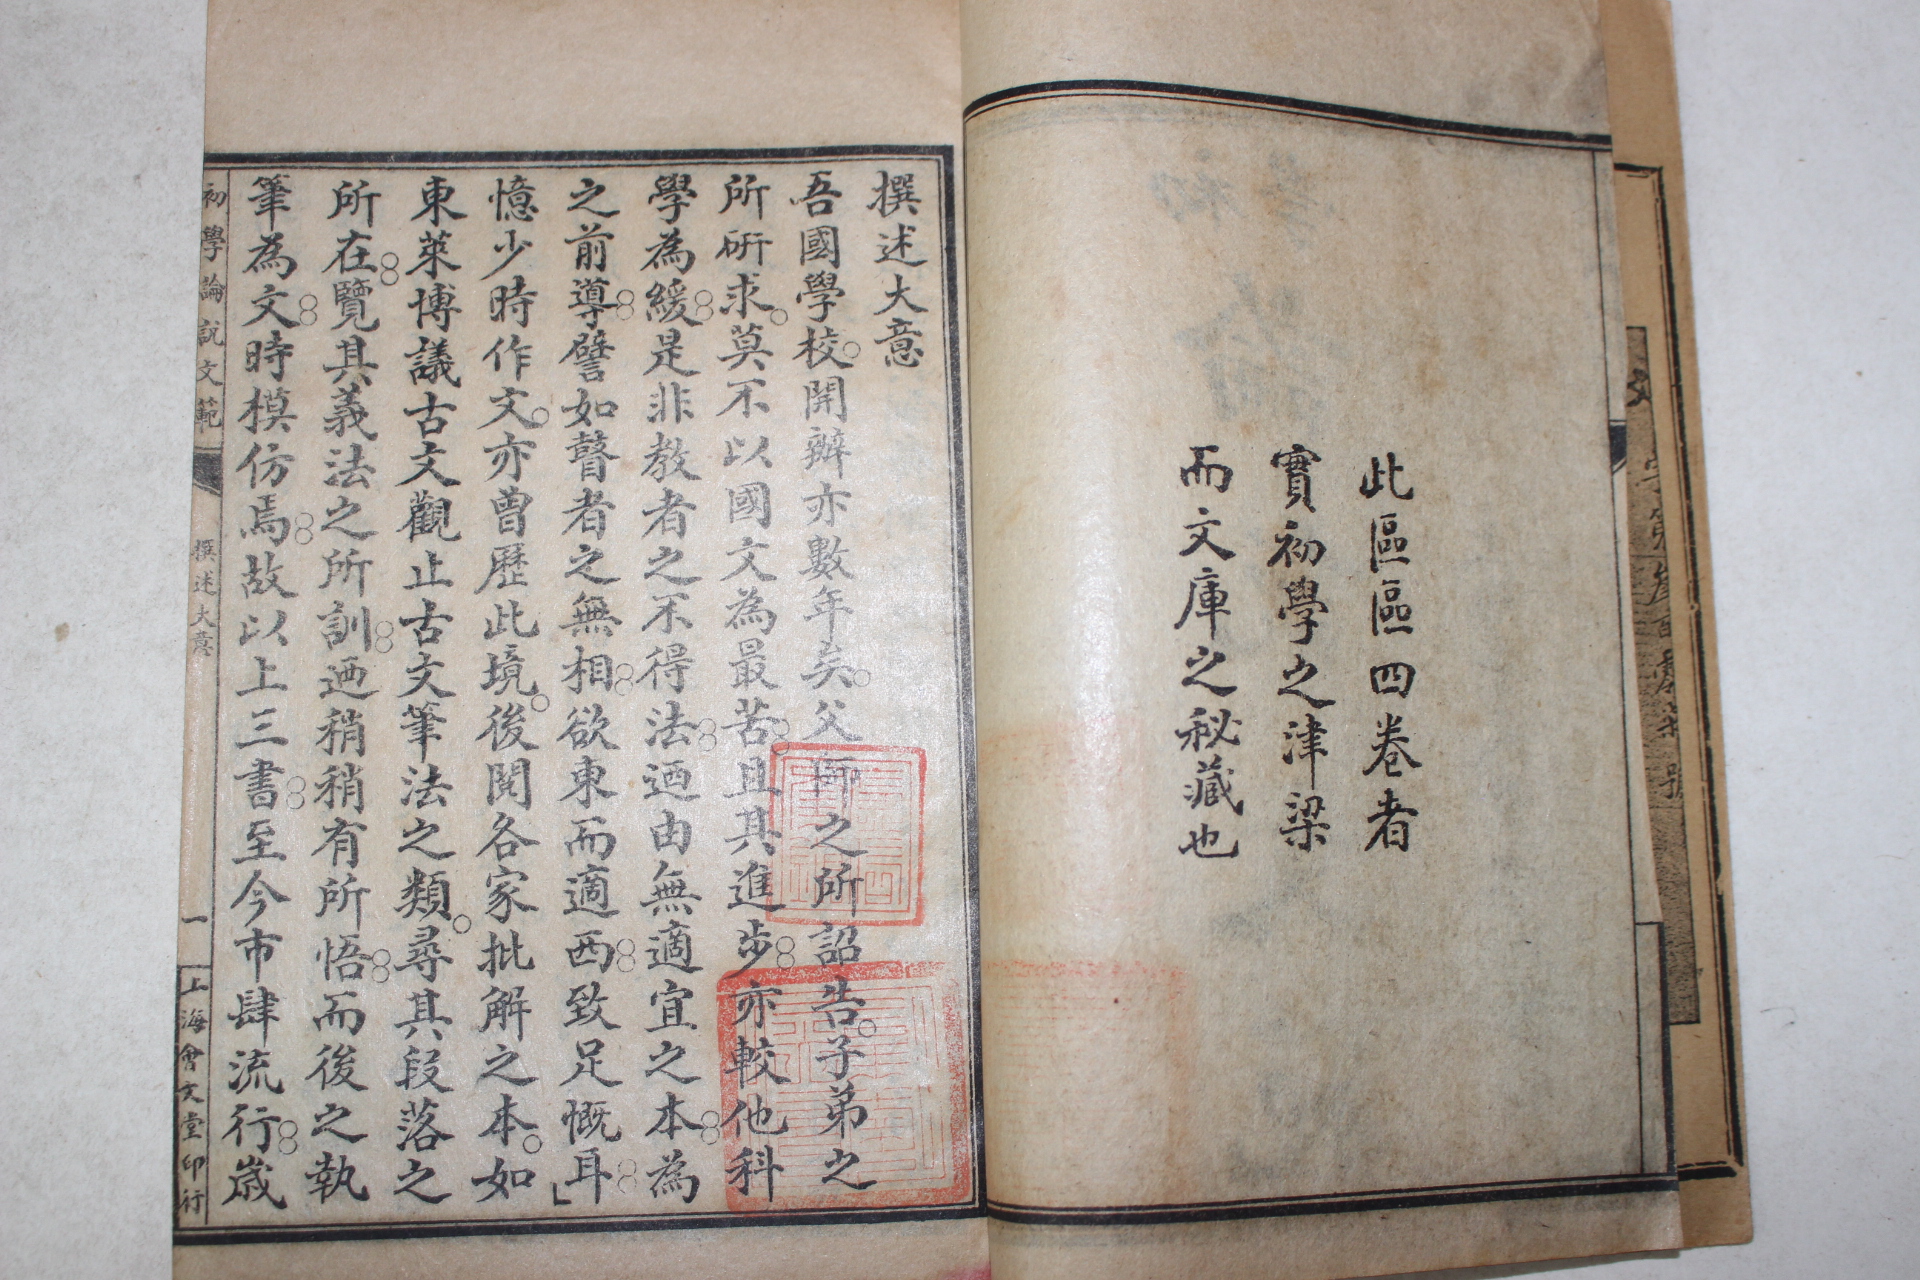 此區區四卷者
實初學之津梁
而文庫之秘藏也
撰述大意
吾國學校開辦亦數年矣父師之所詔告子弟之
所硏求莫不以國文為最苦且其進步亦較他科
學為緩是非教者之不得法迺由無適宜之本為
之前導譬如瞽者之無相欲東而適西致足慨耳
憶少時作文亦曾歷此境後閱各家批解之本如
東萊博議古文觀止古文筆法之類尋其段落之
所在覽其義法之所訓迺稍稍有所悟而後之執
筆為文時模仿焉故以上三書至今市肆流行歲
初學論説文範
撰述大意
一
上海會文堂印行